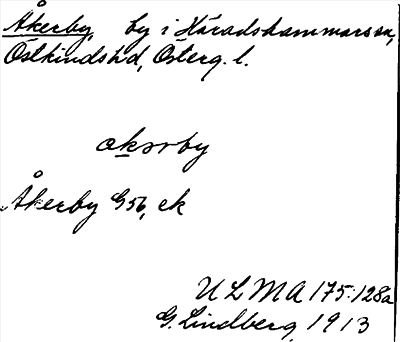 Åkerby, by i Häradshammars sn,
Östkinds hd, Österg. l.
åkərby
Åkerby G56, ek
ULMA 175:128a
G. Lindberg, 1913